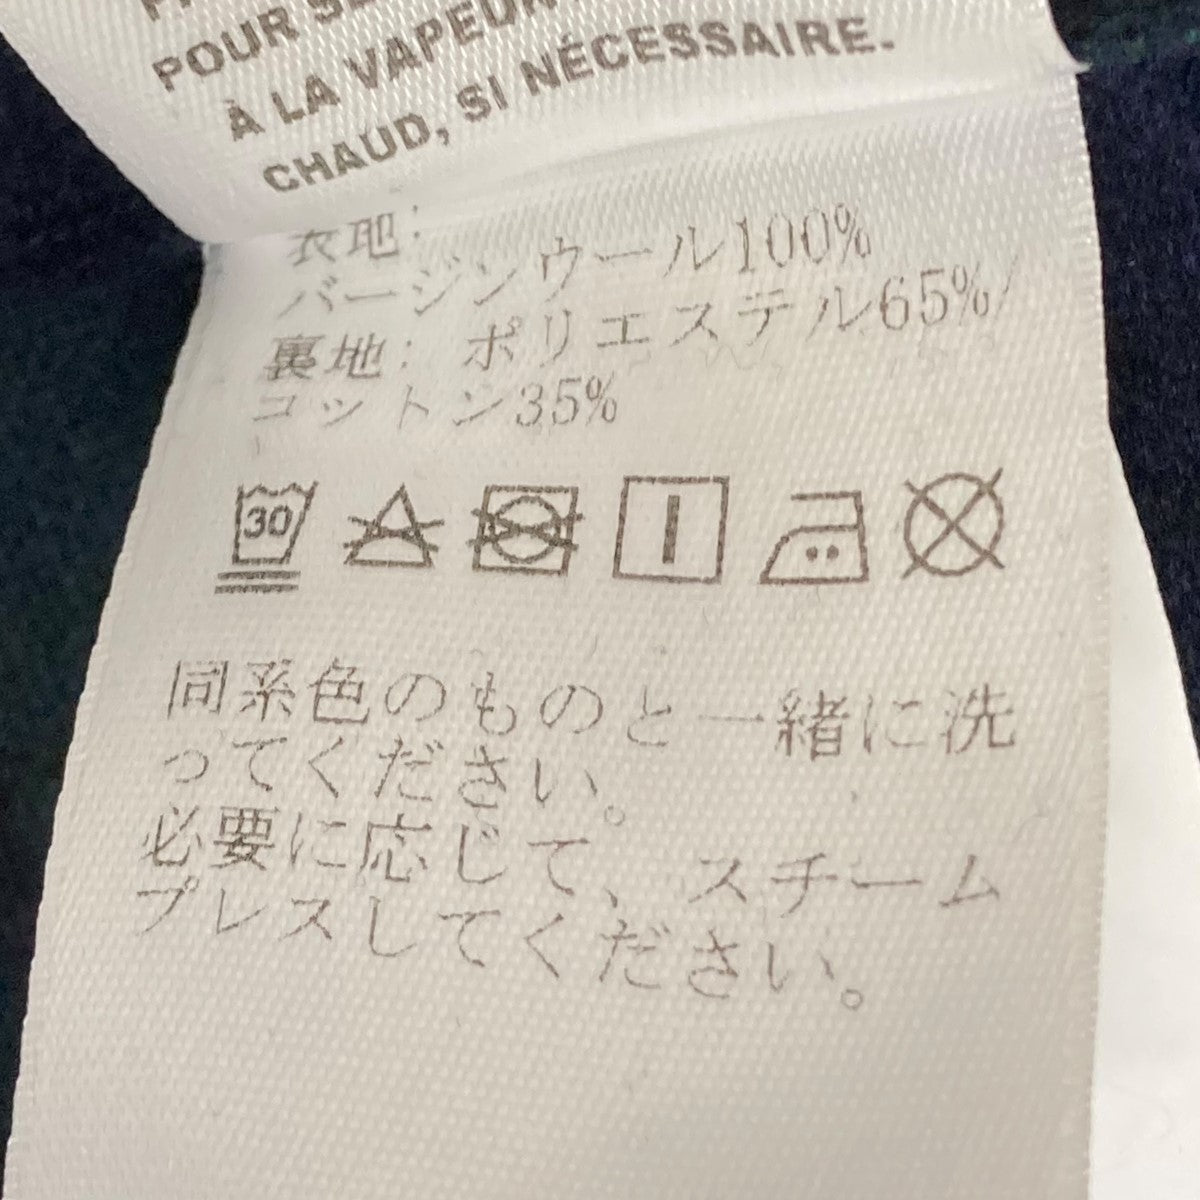 POUR
À LA VAPEUR
CHAUD, SI NÉCESSAIRE.
表地:
バージンウール100%
裏地: ポリエステル65%/
コットン35%
30
同系色のものと一緒に洗
ってください。
必要に応じて、スチーム
プレスしてください。